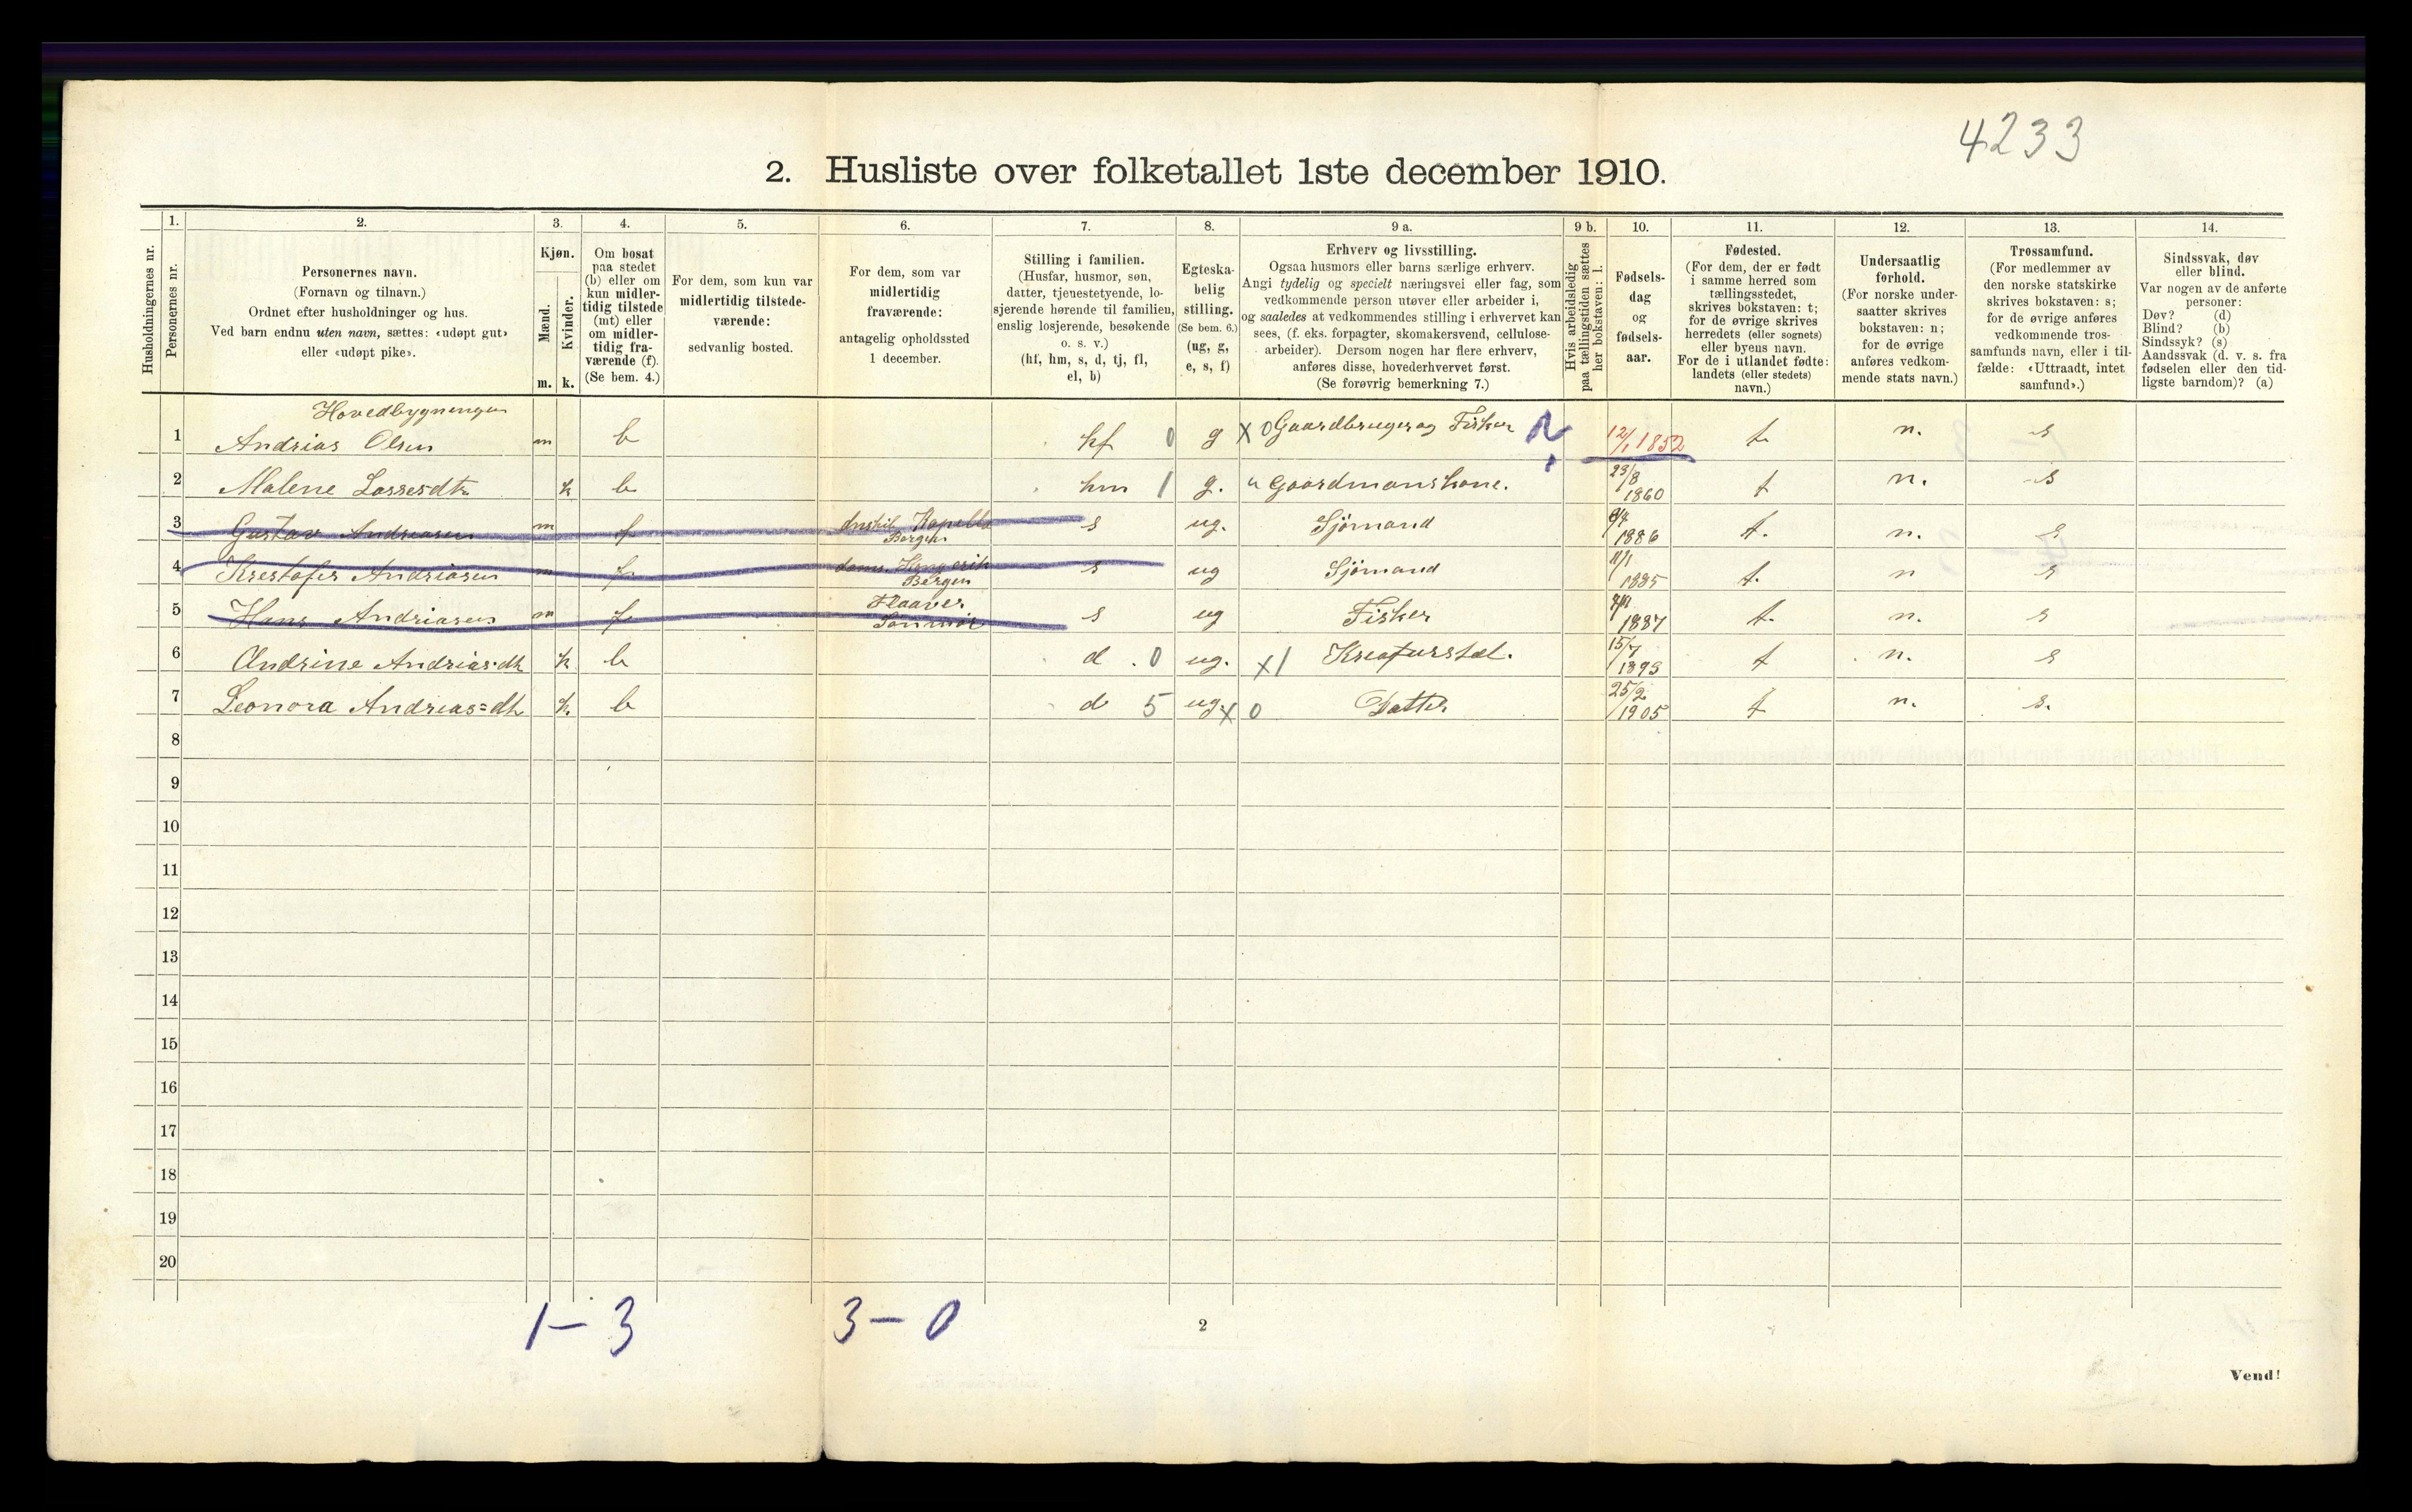 4233
2. Husliste over folketallet 1ste december 1910.
Husholdningernes nr.
1.
Personernes nr.
2.
Personernes navn.
(Fornavn og tilnavn.)
Ordnet efter husholdninger og hus.
Ved barn endnu uten navn, sættes: «udøpt gut»
eller «udøpt pike».
3.
Kjøn.
Mænd.
Kvinder.
m. k.
4.
Om bosat
paa stedet
(b) eller om
kun midler-
tidig tilstede
(mt) eller
om midler-
tidig fra-
værende (f).
(Se bem. 4.)
5.
For dem, som kun var
midlertidig tilstede-
værende:
sedvanlig bosted.
6.
For dem, som var
midlertidig
fraværende:
antagelig opholdssted
1 december.
7.
Stilling i familien.
(Husfar, husmor, søn,
datter, tjenestetyende, lo-
sjerende hørende til familien,
enslig losjerende, besøkende
o. s. v.)
(hf, hm, s, d, tj, fl,
el, b)
8.
Egteska-
belig
stilling.
(Se bem. 6.)
(ug, g,
e, s, f)
9 a.
Erhverv og livsstilling.
Ogsaa husmors eller barns særlige erhverv.
Angi tydelig og specielt næringsvei eller fag, som
vedkommende person utøver eller arbeider i,
og saaledes at vedkommendes stilling i erhvervet kan
sees, (f. eks. forpagter, skomakersvend, cellulose-
arbeider). Dersom nogen har flere erhverv,
anføres disse, hovederhvervet først.
(Se forøvrig bemerkning 7.)
9 b.
Hvis arbeidsledig
paa tællingstiden sættes
her bokstaven: l.
10.
Fødsels-
dag
og
fødsels-
aar.
11.
Fødested.
(For dem, der er født
i samme herred som
tællingsstedet,
skrives bokstaven: t;
for de øvrige skrives
herredets (eller sognets)
eller byens navn.
For de i utlandet fødte:
landets (eller stedets)
navn.)
12.
Undersaatlig
forhold.
(For norske under-
saatter skrives
bokstaven: n;
for de øvrige
anføres vedkom-
mende stats navn.)
13.
Trossamfund.
(For medlemmer av
den norske statskirke
skrives bokstaven: s;
for de øvrige anføres
vedkommende tros-
samfunds navn, eller i til-
fælde: «Uttraadt, intet
samfund».)
14.
Sindssvak, døv
eller blind.
Var nogen av de anførte
personer:
Døv? (d)
Blind? (b)
Sindssyk? (s)
Aandssvak (d. v. s. fra
fødselen eller den tid-
ligste barndom)? (a)
Hovedbygningen
1 Andrias Olsen m b hf 0 g X 0 Gaardbruger og Fisker 12/1 1852 t n. s
2 Malene Lassesdtr k b hm 1 g. Gaardmanskone. 23/8 1860 t n. s
3 Gustav Andriasen m f Bergen s ug. Sjømand 1886 t. n. s
4 Krestofer Andriasen m f Bergen s ug Sjømand 11/1 1885 t. n s
5 Hans Andriasen m f s ug Fisker 1887 t. n. s
6 Andrine Andriasdt k b d 0 ug. x 1 Kreaturstel. 15/7 1893 t n. s
7 Leonora Andreas=dt k. b d 5 ug. x 0 Datter 25/2 1905 t n. s.
8
9
10
11
12
13
14
15
16
17
18
19
20
1 – 3 3 – 0
2
Vend!